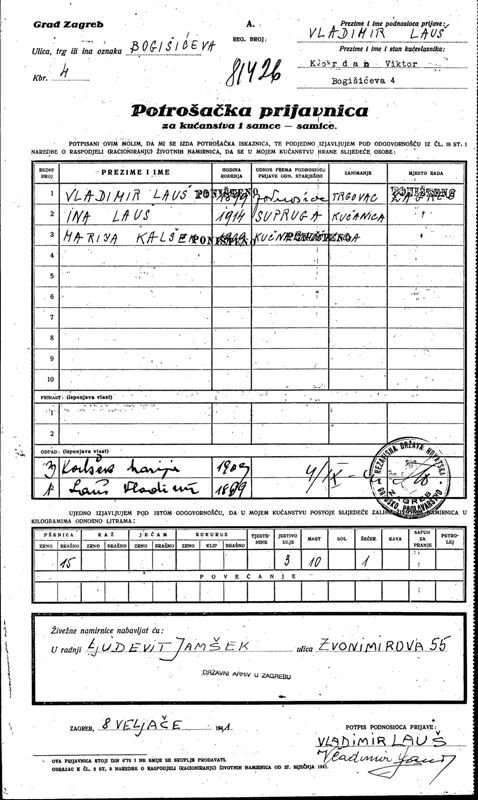 Grad Zagreb
Ulica, trg ili ina oznaka BOGIŠIĆEVA
Kbr. 4
A.
REG. BROJ:
81426
Prezime i ime podnosioca prijave:
VLADIMIR LAUŠ
Prezime i ime i stan kućevlasnika:
Viktor
Bogišićeva 4
Potrošačka prijavnica
za kućanstva i samce — samice.
POTPISANI OVIM MOLIM, DA MI SE IZDA POTROŠAČKA ISKAZNICA, TE PODJEDNO IZJAVLJUJEM POD ODGOVORNOŠĆU IZ ČL. 18 ST. 1
NAREDBE O RASPODJELI (RACIONIRANJU) ŽIVOTNIH NAMIRNICA, DA SE U MOJEM KUĆANSTVU HRANE SLIJEDEĆE OSOBE:
REDNI BROJ
PREZIME I IME
GODINA ROĐENJA
ODNOS PREMA PODNOSIOCU PRIJAVE ODN. STARJEŠINI
ZANIMANJE
MJESTO RADA
1 VLADIMIR LAUŠ PONIŠTENO 1899 TRGOVAC ZAGREB PONIŠTENO
2 INA LAUŠ 1914 SUPRUGA KUĆANICA "
3 MARIJA PONIŠTENO KUĆNA PONIŠTENO
4
5
6
7
8
9
10
PRIRAST: (ispunjava vlast)
1
2
OTPAD: (ispunjava vlast)
3) 1909 4/IX
1) Lauš Vladimir 1899
NEZAVISNA DRŽAVA HRVATSKA
ZAGREB
UJEDNO IZJAVLJUJEM POD ISTOM ODGOVORNOŠĆU, DA U MOJEM KUĆANSTVU POSTOJE SLIJEDEĆE ZALIHE ŽIVEŽNIH NAMIRNICA U
KILOGRAMIMA ODNOSNO LITRAMA:
PŠENICA RAŽ JEČAM KUKURUZ TJESTENINE JESTIVO ULJE MAST SOL ŠEĆER KAVA SAPUN ZA PRANJE PETROLEJ
ZRNO BRAŠNO ZRNO BRAŠNO ZRNO BRAŠNO ZRNO KLIP BRAŠNO
15 3 10 1
POVEĆANJE
Živežne namirnice nabavljat ću:
U radnji LJUDEVIT JAMŠEK ulica ZVONIMIROVA 55
DRŽAVNI ARHIV U ZAGREBU
ZAGREB, 8 VELJAČE 1941
POTPIS PODNOSIOCA PRIJAVE:
VLADIMIR LAUŠ
Vladimir Lauš
OVA PRIJAVNICA STOJI DIN 0'75 I NE SMIJE SE SKUPLJE PRODAVATI.
OBRAZAC K ČL. 2 ST. 3 NAREDBE O RASPODJELI (RACIONIRANJU) ŽIVOTNIH NAMIRNICA OD 27. SIJEČNJA 1941.